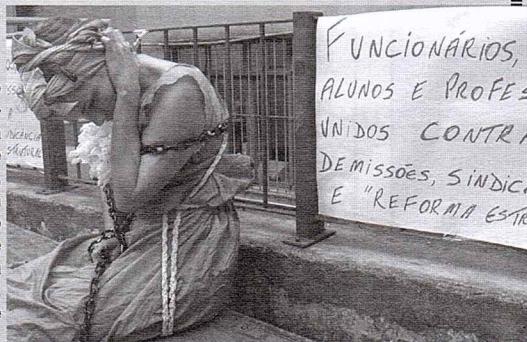 FUNCIONÁRIOS,
ALUNOS E PROFES
UNIDOS CONTRA
DEMISSÕES, SINDIC
E "REFORMA ESTR